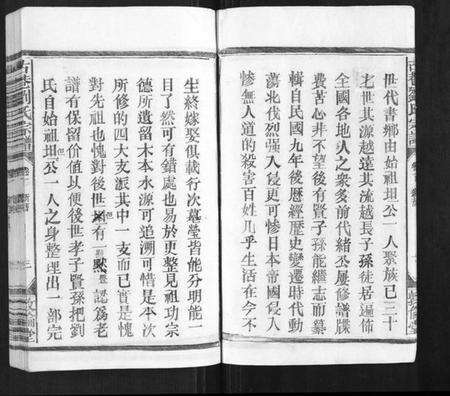 世代書鄉由始祖坦公一人聚族已三十
七世其源越遠其流越長子孫徒居遍佈
全國各地人之衆多前代緒公屢修譜牒
費苦心非不望後有賢子孫能繼志而纂
輯自民國九年後歷經歷史變遷時代動
蕩北伐烈强入侵更可惨日本帝國侵人
惨無人道的殺害百姓几乎生活在今不
生終嫁娶俱載行次墓塋皆能分明能一
目了然可有錯處也易於更整見祖功宗
德所遺留木本水源可追溯可惜是本次
所修的四大支派其中一支而已實是愧
對先祖也愧對後世但有一點認為老
譜有保留价值以便後世孝子賢孫把劉
氏自始祖坦公一人之身整理出一部完
古巷劉氏宗譜
敦倫堂